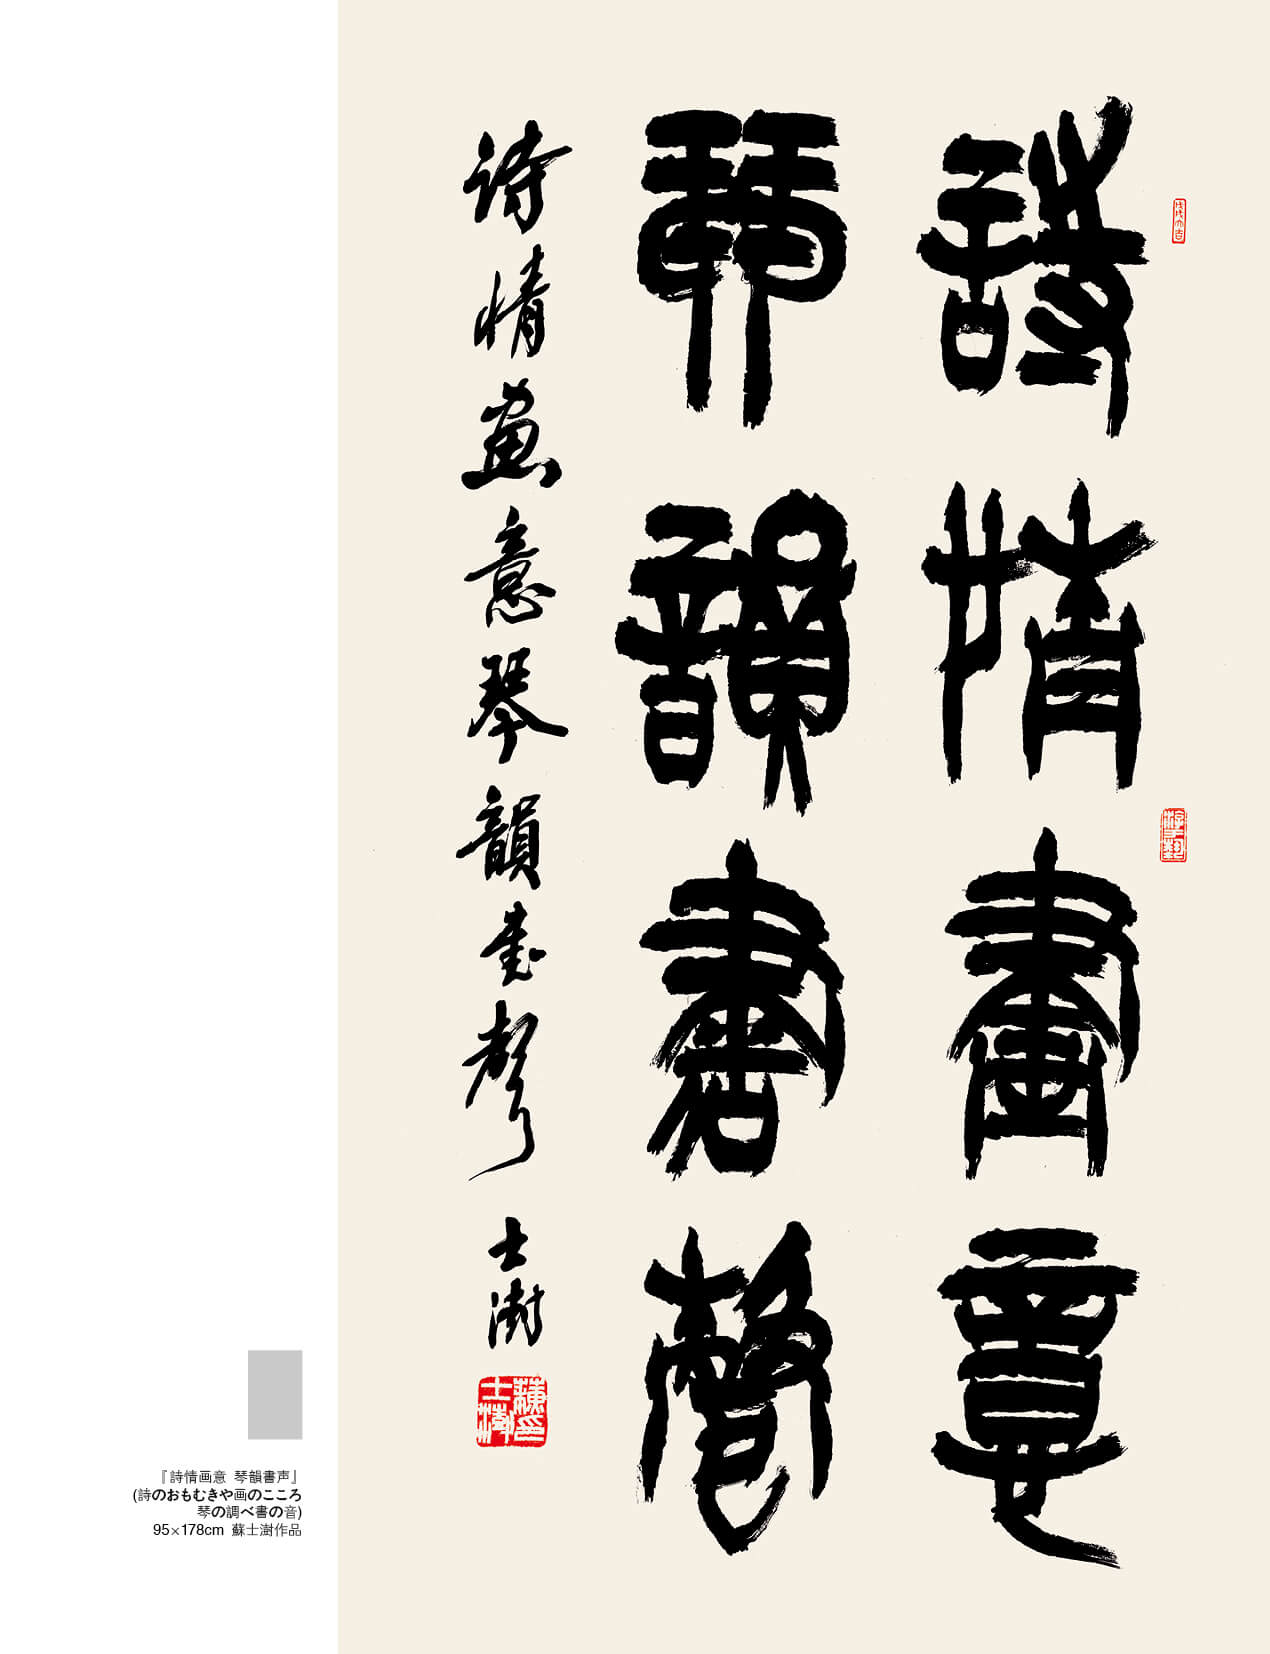 詩情畫意
琴韻書聲
詩情画意琴韻書聲
士澍
戊戌大吉
蘇士澍印
『詩情画意 琴韻書声』
(詩のおもむきや画のこころ
琴の調べ書の音)
95×178cm 蘇士澍作品